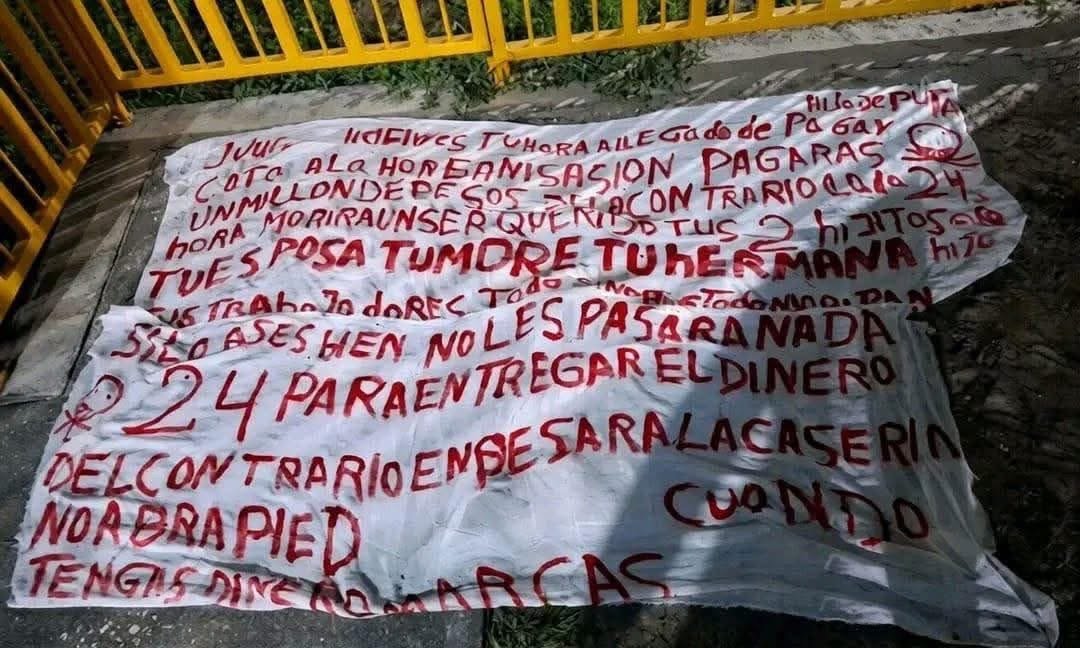 TUHORA ALLEGado de PaGaY HiJo DE PUTA
COTA ALA HORGANISASION PAGARAS
UNMILLONDEPESOS CONTRARIO CaDa 24
hORA MORIRAUNSERQUERIDO TUS 2 hIJITOS
TUESPOSA TUMDRE TUhERMANA hiJO
TRABaJaDORES TODO
SILO ASES BIEN NO LES PASARA NADA
24 PARAENTREGAR EL DINERO
DELCONTRARIO ENPESARA LA CASERIA
NOABRAPIED CUaNDO
TENGAS DINERO MARCAS